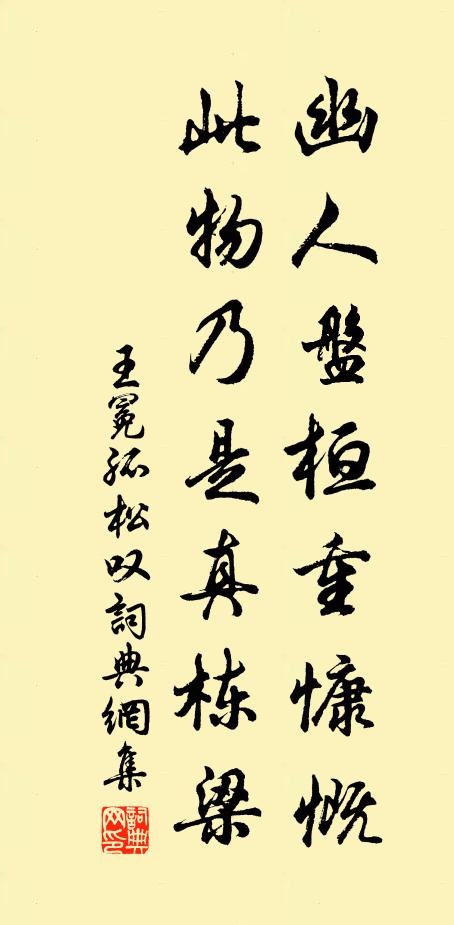 幽人盤桓重慷慨
此物乃是真栋梁
王冕孤松叹詞典網集
詞典网印